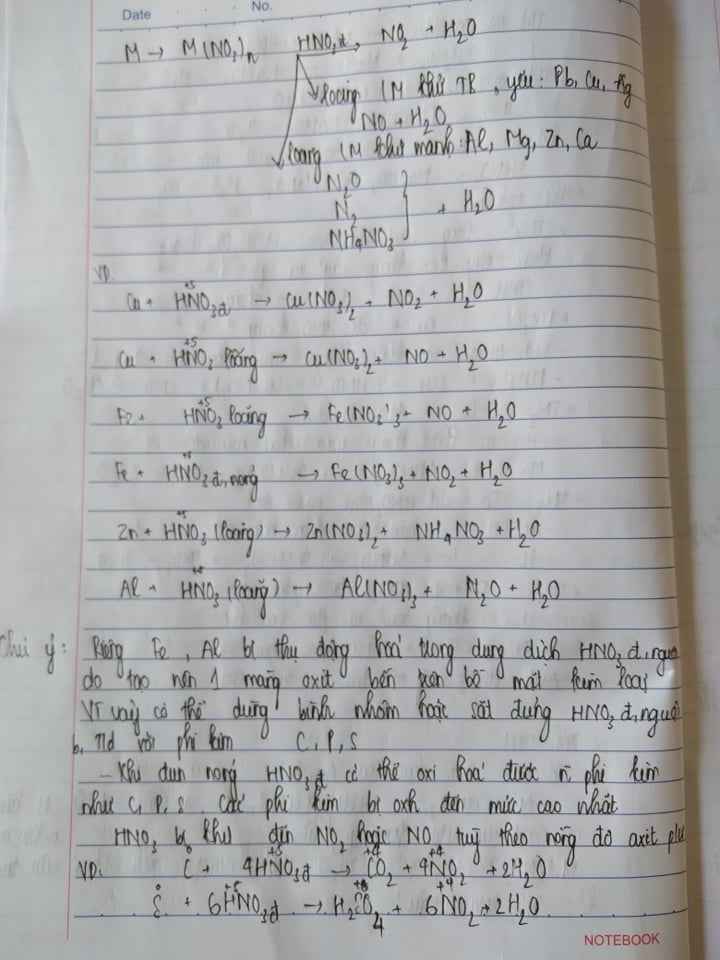 Date No.
M → M(NO3)n HNO3đ, NO2 + H2O
loãng (M khử TB, yếu: Pb, Cu, Ag
NO + H2O
loãng (M khử mạnh: Al, Mg, Zn, Ca
N2O
N2 + H2O
NH4NO3
VD.
Cu + HN+5O3đ → Cu(NO3)2 + NO2 + H2O
Cu + HN+5O3 loãng → Cu(NO3)2 + NO + H2O
Fe + HN+5O3 loãng → Fe(NO3)3 + NO + H2O
Fe + HN+5O3đ,nóng → Fe(NO3)3 + NO2 + H2O
Zn + HN+5O3 (loãng) → Zn(NO3)2 + NH4NO3 + H2O
Al + HN+5O3 (loãng) → Al(NO3)3 + N2O + H2O
Chú ý: Riêng Fe, Al bị thụ động hoá trong dung dịch HNO3 đ, nguội
do tạo nên 1 màng oxit bền trên bề mặt kim loại
Vì vậy có thể dùng bình nhôm hoặc sắt đựng HNO3 đ, nguội
b, T/d với phi kim C, P, S
- Khi đun nóng HNO3đ có thể oxi hoá được n phi kim
như C, P, S. Các phi kim bị oxh đến mức cao nhất
HNO3 bị khử đến NO2 hoặc NO tuỳ theo nồng độ axit
VD. C0 + 4HN+5O3đ → C+4O2 + 4N+4O2 + 2H2O
S0 + 6HN+5O3đ → H2S+6O4 + 6N+4O2 + 2H2O
NOTEBOOK